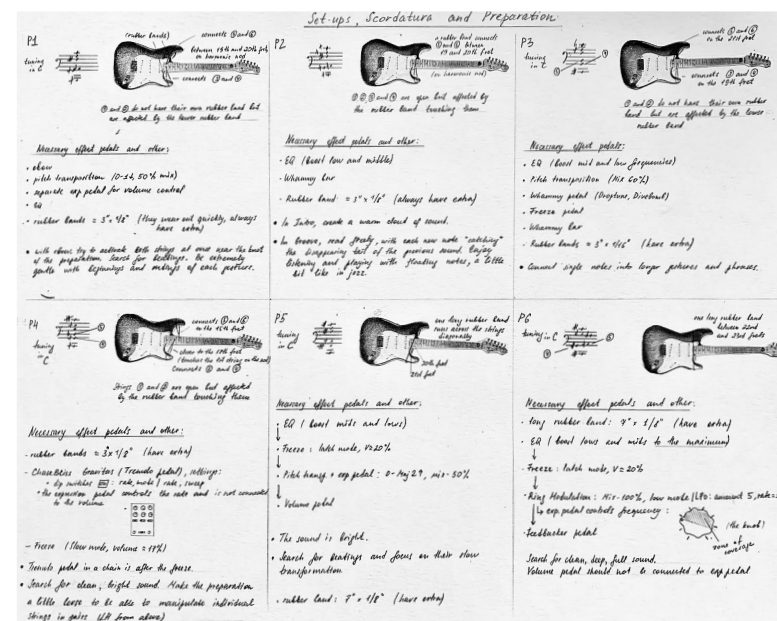 Set-ups, Scordatura and Preparation
P1
(rubber bands)
connects ① and ⑥
between 18th and 20th fret
on harmonic nod
tuning
in C
connects
do not have their own rubber band but
are affected by the lower rubber band
Necessary effect pedals and other:
• ebow
• pitch transposition 50% mix)
• separate exp pedal for volume control
• EQ
- rubber bands = 3" × 1/8" (they wear out quickly, always
have extra)
• with ebows try to activate both strings at once near the knot
of the preparation. Search for beatings. Be extremely
gentle with beginnings and endings of each gesture.
P2
a rubber band connects
① and ⑥ between
19 and 20th fret
(on harmonic nod)
tuning
in C
are open but affected by
the rubber band touching them
Necessary effect pedals and other:
- EQ (boost low and middle)
- Whammy bar
- Rubber band = 3" × 1/8" (always have extra)
• In Intro, create a warm cloud of sound.
• In Groove, read freely, with each new note "catching"
the disappearing tail of the previous sound. Enjoy
listening and playing with floating notes, a little
bit like in jazz.
P3
connects ① and ⑥
on the 21st fret
tuning
in C
connects
on the 19th fret
do not have their own rubber
band but are affected by the lower
rubber band
Necessary effect pedals:
- EQ (boost mid and low frequencies)
- Pitch transposition (Mix 60%)
- Whammy pedal (Droptune, Divebomb)
- Freeze pedal
- Whammy bar
- Rubber bands = 3" × 1/16" (have extra)
• Connect single notes into longer gestures and phrases.
P4
connects ① and ⑥
on the 15th fret
tuning
in C
close to the 19th fret
(touches the 1st string on the nod)
Connects
Strings are open but affected
by the rubber band touching them
Necessary effect pedals and other:
- rubber bands = 3" × 1/8" (have extra)
- Chase Bliss Gravitas (Tremolo pedal), settings:
• dip switches : rate, mode / rate, sweep
• the expression pedal controls the rate and is not connected
to the volume
- Freeze (slow mode, volume = 17%)
• Tremolo pedal in a chain is after the freeze.
• Search for clean, bright sound. Make the preparation
a little loose to be able to manipulate individual
strings in (LH from above)
P5
one long rubber band
runs across the strings
diagonally
tuning
in C
20th fret
21st fret
Necessary effect pedals and other:
- EQ (boost mids and lows)
- Freeze: latch mode, V=20%
- Pitch transp. + exp pedal: 0 - Maj 2↑, mix - 50%
- Volume pedal
• The sound is bright.
• Search for beatings and focus on their slow
transformation.
- rubber band: 7" × 1/8" (have extra)
P6
one long rubber band
between 22nd
and 23rd frets
tuning
in C
Necessary effect pedals and other:
- long rubber band: 7" × 1/8" (have extra)
- EQ (boost lows and mids to the maximum)
- Freeze: latch mode, V=20%
- Ring Modulation: Mix-100%, low mode / LFO: amount 5, rate=
↳ exp pedal controls frequency:
(the knob)
zone of
coverage
- Feedbacker pedal
Search for clean, deep, full sound.
Volume pedal should not be connected to exp pedal